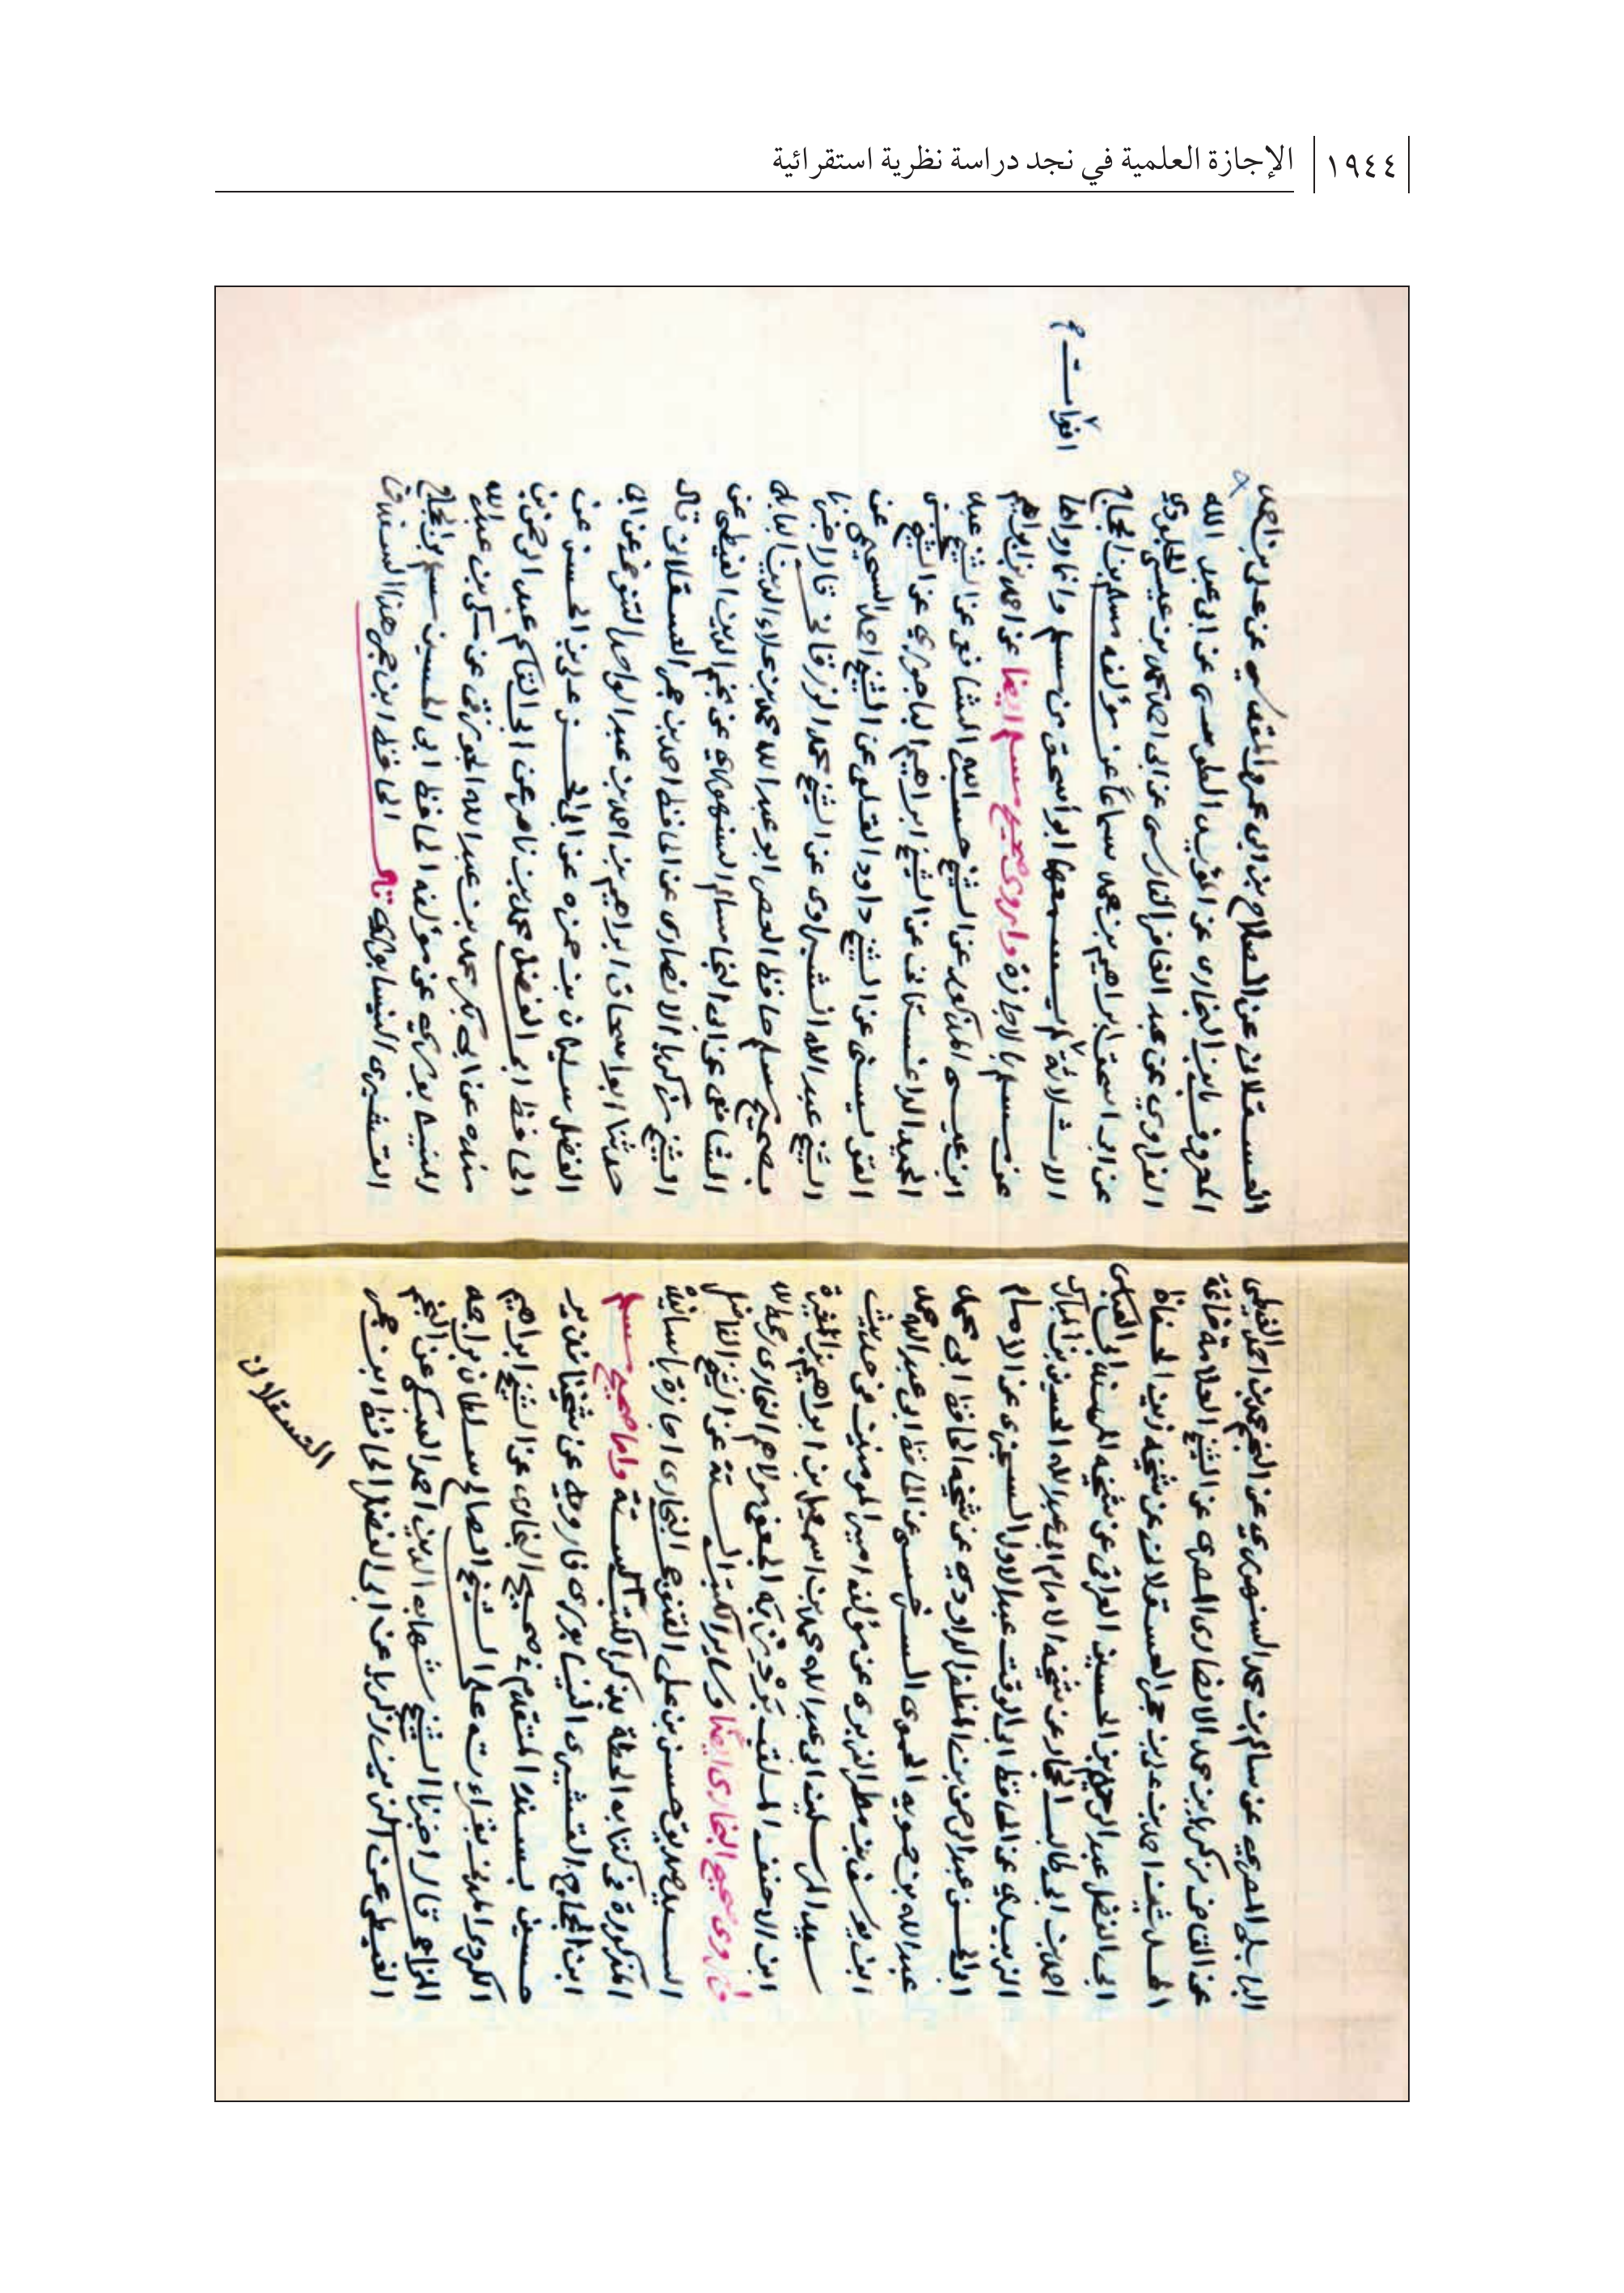 ١٩٤٤
الإجازة العلمية في نجد دراسة نظرية استقرائية
البابلي المصري عن سالم بن محمد السنهوري عن النجم محمد بن احمد الغيطي
عن القاضي زكريا بن محمد الانصاري المصري عن الشيخ العلامة خاتمة
المحدثين احمد بن علي بن حجر العسقلاني عن شيخه زين الحفاظ
ابي الفضل عبد الرحيم بن الحسين العراقي عن شيخه المسند ابي العباس
احمد بن ابي طالب الحجار عن شيخه الامام ابي عبد الله الحسين بن المبارك
الزبيدي عن الحافظ ابي الوقت عبد الاول السجزي عن الامام
ابي الحسن عبد الرحمن بن المظفر الداودي عن شيخه الحافظ ابي محمد
عبد الله بن حمويه الحموي السرخسي عن الحافظ ابي عبد الله محمد
ابن يوسف بن مطر الفربري عن مؤلفه امير المومنين في حديث
سيد المرسلين ابي عبد الله محمد بن اسمعيل بن ابراهيم بن المغيرة
ابن الاحنف الملقب بَرْدِزْبَه الجعفي مولاهم البخاري رحمه الله
وأروي صحيح البخاري ايضًا وساير الكتب الستة عن الشيخ الفاضل
السيد صديق حسن بن علي القنوجي البخاري اجازة باسانيده
المذكورة في كتابه الحطة بذكر الكتب الستة واما صحيح مسلم
ابن الحجاج القشيري النيسابوري فارويه عن شيخنا نذير
حسين بسنده المتقدم في صحيح البخاري عن الشيخ ابراهيم
الكردي المدني بقراءته على الشيخ الصالح سلطان بن احمد
المزاحي قال اخبرنا الشيخ شهاب الدين احمد السبكي عن النجم
الغيطي عن الزين زكريا عن ابي الفضل الحافظ ابن حجر
العسقلاني
العسقلاني عن الصلاح بن ابي عمر المقدسي عن علي بن احمد
المعروف بابن البخاري عن المؤيد الطوسي عن ابي عبد الله
الفراوي عن عبد الغافر الفارسي عن ابي احمد محمد بن عيسى الجلودي
عن ابي اسحق ابراهيم بن محمد سماعاً عن مؤلفه مسلم بن الحجاج
الا ثلاثة لم يسمعها ابو اسحق من مسلم وانما رواها
عن مسلم بالاجازة واروي صحيح مسلم ايضا عن احمد بن ابراهيم
ابن عيسى المذكور عن الشيخ حسب الله الشافعي عن الشيخ عبد
الحميد الداغستاني عن الشيخ ابراهيم الباجوري عن الشيخ
القويسني عن الشيخ داود القلعي عن الشيخ احمد السحيمي عن
الشيخ عبد الله الشبراوي عن الشيخ محمد الزرقاني قال اخبرنا
بصحيح مسلم حافظ العصر ابو عبد الله محمد بن علاء الدين البابلي
الشافعي عن ابي النجا سالم السنهوري عن نجم الدين الغيطي عن
الشيخ زكريا الانصاري عن الحافظ احمد بن حجر العسقلاني قال
حدثنا ابو اسحاق ابراهيم بن احمد بن عبد الواحد التنوخي عن ابي
الفضل سليمان بن حمزه عن ابي الحسن علي بن الحسين عن
الحافظ ابي الفضل محمد بن ناصر عن ابي القاسم عبد الرحمن بن
منده عن ابي بكر محمد بن عبد الله الجوزقي عن مكي بن عبد الله
النيسابوري عن مؤلفه الحافظ ابي الحسين مسلم بن الحجاج
القشيري النيسابوري قال الحافظ ابن حجر هذا السند في